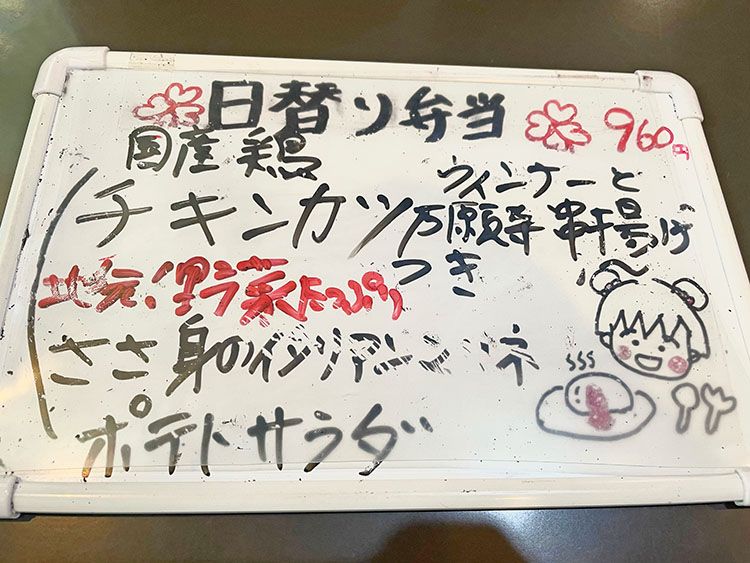 日替り弁当 960円
国産鶏
チキンカツ
ウィンナーと
万願寺串揚げ
つき
地元!野菜たっぷり
ささ身のイタリアン
ポテトサラダ